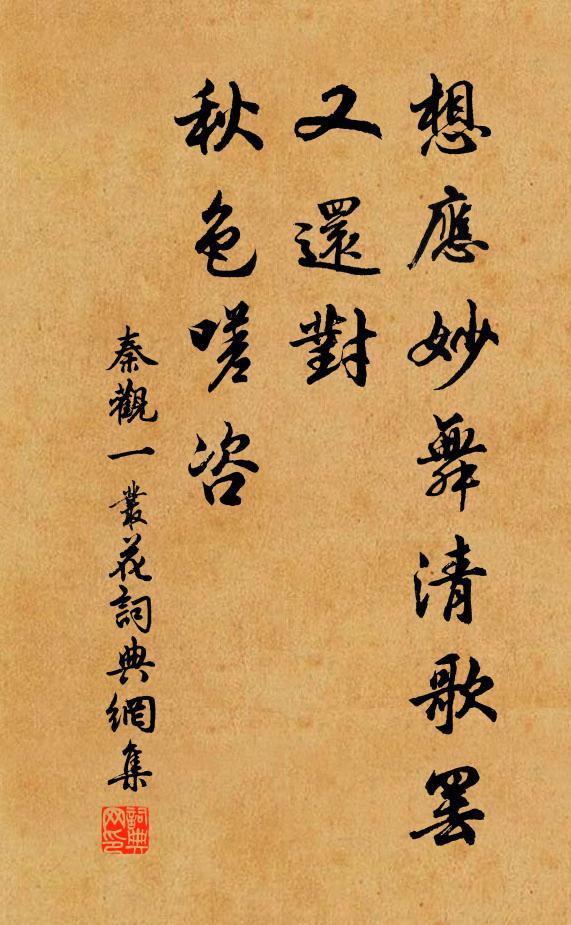 想應妙舞清歌罷
又還對
秋色嗟咨
秦觀一叢花詞典網集
詞典網印